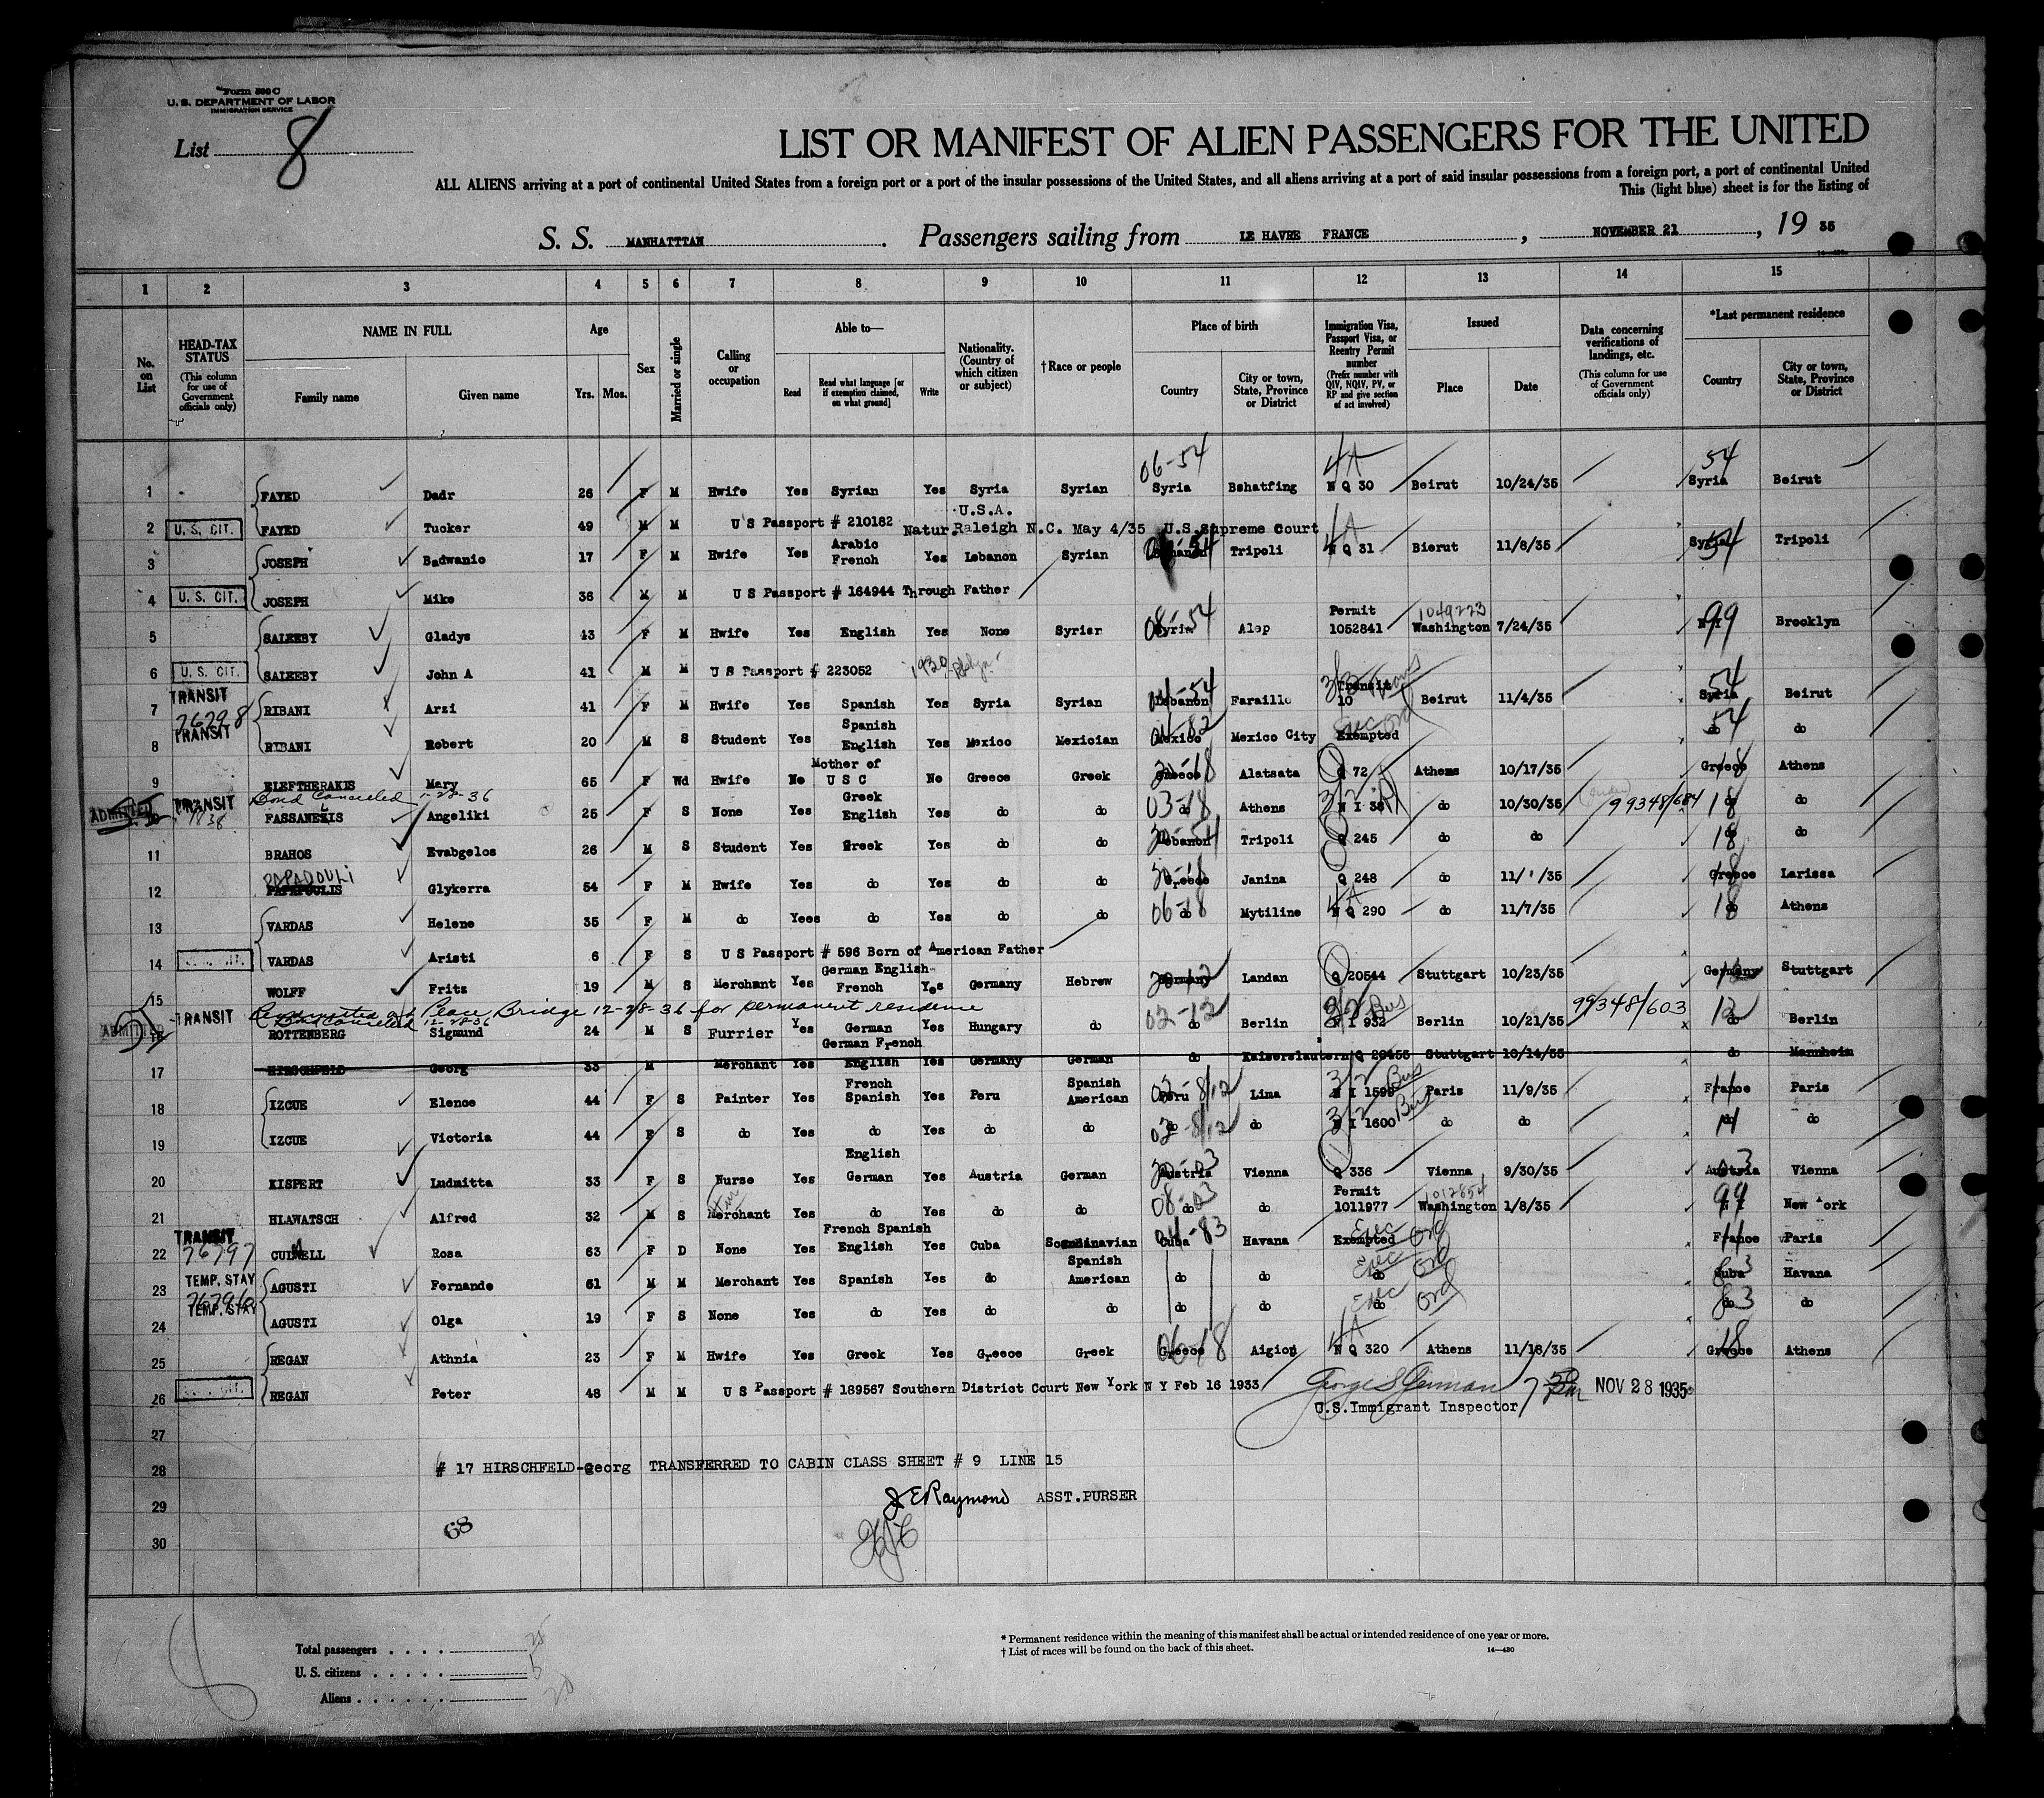 Form 500 C
U. S. DEPARTMENT OF LABOR
IMMIGRATION SERVICE
List 8
LIST OR MANIFEST OF ALIEN PASSENGERS FOR THE UNITED
ALL ALIENS arriving at a port of continental United States from a foreign port or a port of the insular possessions of the United States, and all aliens arriving at a port of said insular possessions from a foreign port, a port of continental United
This (light blue) sheet is for the listing of
S. S. MANHATTTAN . Passengers sailing from LE HAVRE FRANCE , NOVEMBER 21 , 19 35
1 2 3 4 5 6 7 8 9 10 11 12 13 14 15
No. on List
HEAD-TAX STATUS (This column for use of Government officials only)
NAME IN FULL
Family name Given name
Age Yrs. Mos.
Sex
Married or single
Calling or occupation
Able to— Read Read what language [or if exemption claimed, on what ground] Write
Nationality. (Country of which citizen or subject)
†Race or people
Place of birth
Country City or town, State, Province or District
Immigration Visa, Passport Visa, or Reentry Permit number (Prefix number with QIV, NQIV, PV, or RP and give section of act involved)
Issued Place Date
Data concerning verifications of landings, etc. (This column for use of Government officials only)
*Last permanent residence
Country City or town, State, Province or District
06-54 4A 54
1 FAYED Dadr 26 F M Hwife Yes Syrian Yes Syria Syrian Syria Bshatfing N Q 30 Beirut 10/24/35 Syria Beirut
U.S.A.
2 U. S. CIT. FAYED Tucker 49 M M U S Passport # 210182 Natur. Raleigh N.C. May 4/35 U.S.Supreme Court
3 JOSEPH Badwanio 17 F M Hwife Yes Arabic French Yes Lebanon Syrian Tripoli 4A N Q 31 Bierut 11/8/35 Syria 54 Tripoli
4 U. S. CIT. JOSEPH Mike 36 M M U S Passport # 164944 Through Father
5 SALEEBY Gladys 43 F M Hwife Yes English Yes None Syriar Syria 08-54 Alep Permit 1052841 1049223 Washington 7/24/35 99 Brooklyn
6 U. S. CIT. SALEEBY John A 41 M M U S Passport # 223052 1930
7 TRANSIT 76798 RIBANI Arzi 41 F M Hwife Yes Spanish Yes Syria Syrian Lebanon Faraille Transit 10 Beirut 11/4/35 54 Syria Beirut
8 TRANSIT RIBANI Robert 20 M S Student Yes Spanish English Yes Mexico Mexician Mexico Mexico City Exempted 54 do do
9 ELEFTHERAKIS Mary 65 F Wd Hwife No Mother of U S C No Greece Greek Greece Alatsata Q 72 Athens 10/17/35 Greece 18 Athens
Bond Canceled 1-28-36
ADMITTED TRANSIT FASSANELIS Angeliki 25 F S None Yes Greek English Yes do do do 03-18 Athens N I 38 do 10/30/35 99348/684 18 do do
11 BRAHOS Evabgelos 26 M S Student Yes Greek Yes do do Lebanon 30-54 Tripoli Q 245 do do 18 do do
PAPADOULI
12 PAPAPOULIS Glykerra 54 F M Hwife Yes do Yes do do Greece 30-18 Janina Q 248 do 11/1/35 Greece 18 Larissa
13 VARDAS Helene 35 F M do Yees do Yes do do do 06-18 Mytiline 4A N Q 290 do 11/7/35 18 do Athens
14 VARDAS Aristi 6 F S U S Passport # 596 Born of American Father
15 WOLFF Fritz 19 M S Merchant Yes German English French Yes Germany Hebrew Germany Landan Q 20544 Stuttgart 10/23/35 Germany Stuttgart
Readmitted at Peace Bridge 12-28-36 for permanent residence
Bond Canceled 12-28-36
ADMITTED 16 TRANSIT ROTTENBERG Sigmund 24 M S Furrier Yes German Yes Hungary do do 02-12 Berlin 932 Berlin 10/21/35 99348/603 12 do Berlin
17 HIRSCHFELD Georg 33 M Merchant Yes German French English Yes Germany German do Kaiserslautern Q 20455 Stuttgart 10/14/35 do Mannheim
18 IZCUE Elence 44 F S Painter Yes French Spanish Yes Peru Spanish American Peru Lima 3/2 Bus N I 1599 Paris 11/9/35 France Paris
19 IZCUE Victoria 44 F S do Yes do Yes do do do do 3/2 Bus N I 1600 do do do do
20 KISPERT Ludmitta 33 F S Nurse Yes English German Yes Austria German Austria Vienna Q 336 Vienna 9/30/35 Austria Vienna
21 HLAWATSCH Alfred 32 M S Merchant Yes do Yes do do do 08-03 do Permit 1011977 1012854 Washington 1/8/35 99 New York
22 TRANSIT 76797 CUDWELL Rosa 63 F D None Yes French Spanish English Yes Cuba Scandinavian Cuba Havana Exempted Exec Ord France Paris
23 TEMP. STAY AGUSTI Fernando 61 M M Merchant Yes Spanish Yes do Spanish American do do do Exec Ord Cuba 83 Havana
24 76796 TEMP. STAY AGUSTI Olga 19 F S None Yes do Yes do do do do do Exec Ord do 83 do
25 REGAN Athnia 23 F M Hwife Yes Greek Yes Greece Greek Greece 06-18 Aigion 4A N Q 320 Athens 11/18/35 Greece 18 Athens
26 REGAN Peter 48 M M U S Passport # 189567 Southern District Court New York N Y Feb 16 1933 NOV 28 1935
U.S.Immigrant Inspector
27
28 # 17 HIRSCHFELD-Georg TRANSFERRED TO CABIN CLASS SHEET # 9 LINE 15
29 J E Raymond ASST.PURSER
30 68
Total passengers
U. S. citizens 5
Aliens 20
* Permanent residence within the meaning of this manifest shall be actual or intended residence of one year or more.
† List of races will be found on the back of this sheet.
14—430